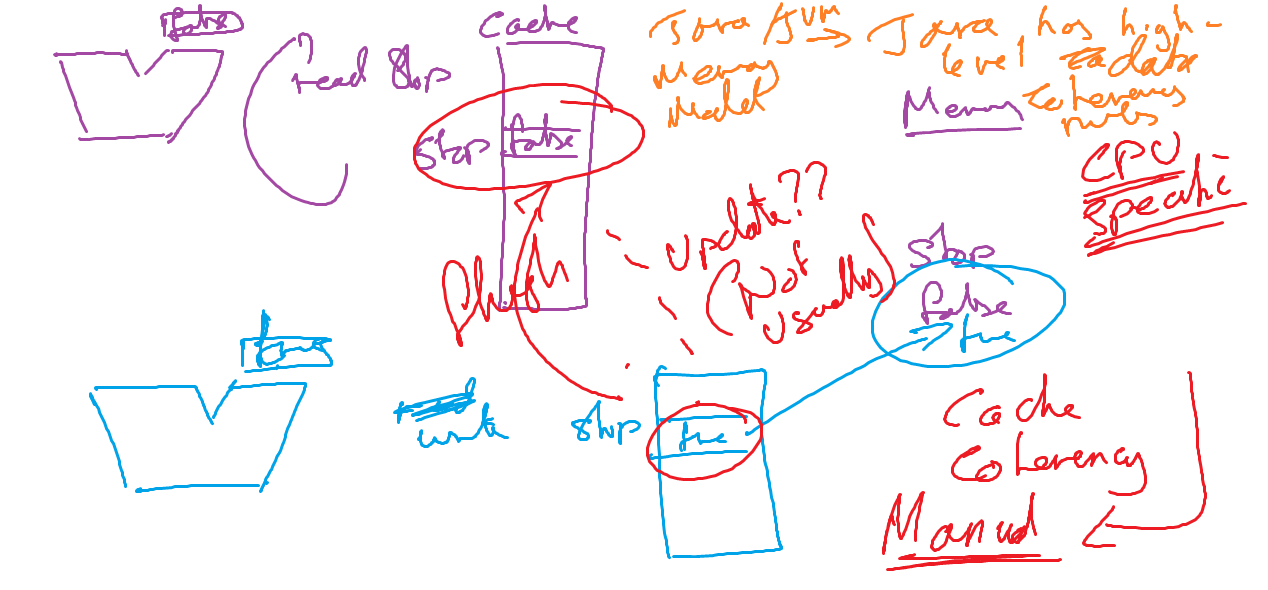 false
Cache
read Stop
Stop false
Java/JVM
Memory
Model
Java has high-
level data
Coherency
rules
Memory
CPU
Specific
Update??
(Not
usually)
Stop
false
true
write
stop true
Cache
Coherency
Manual